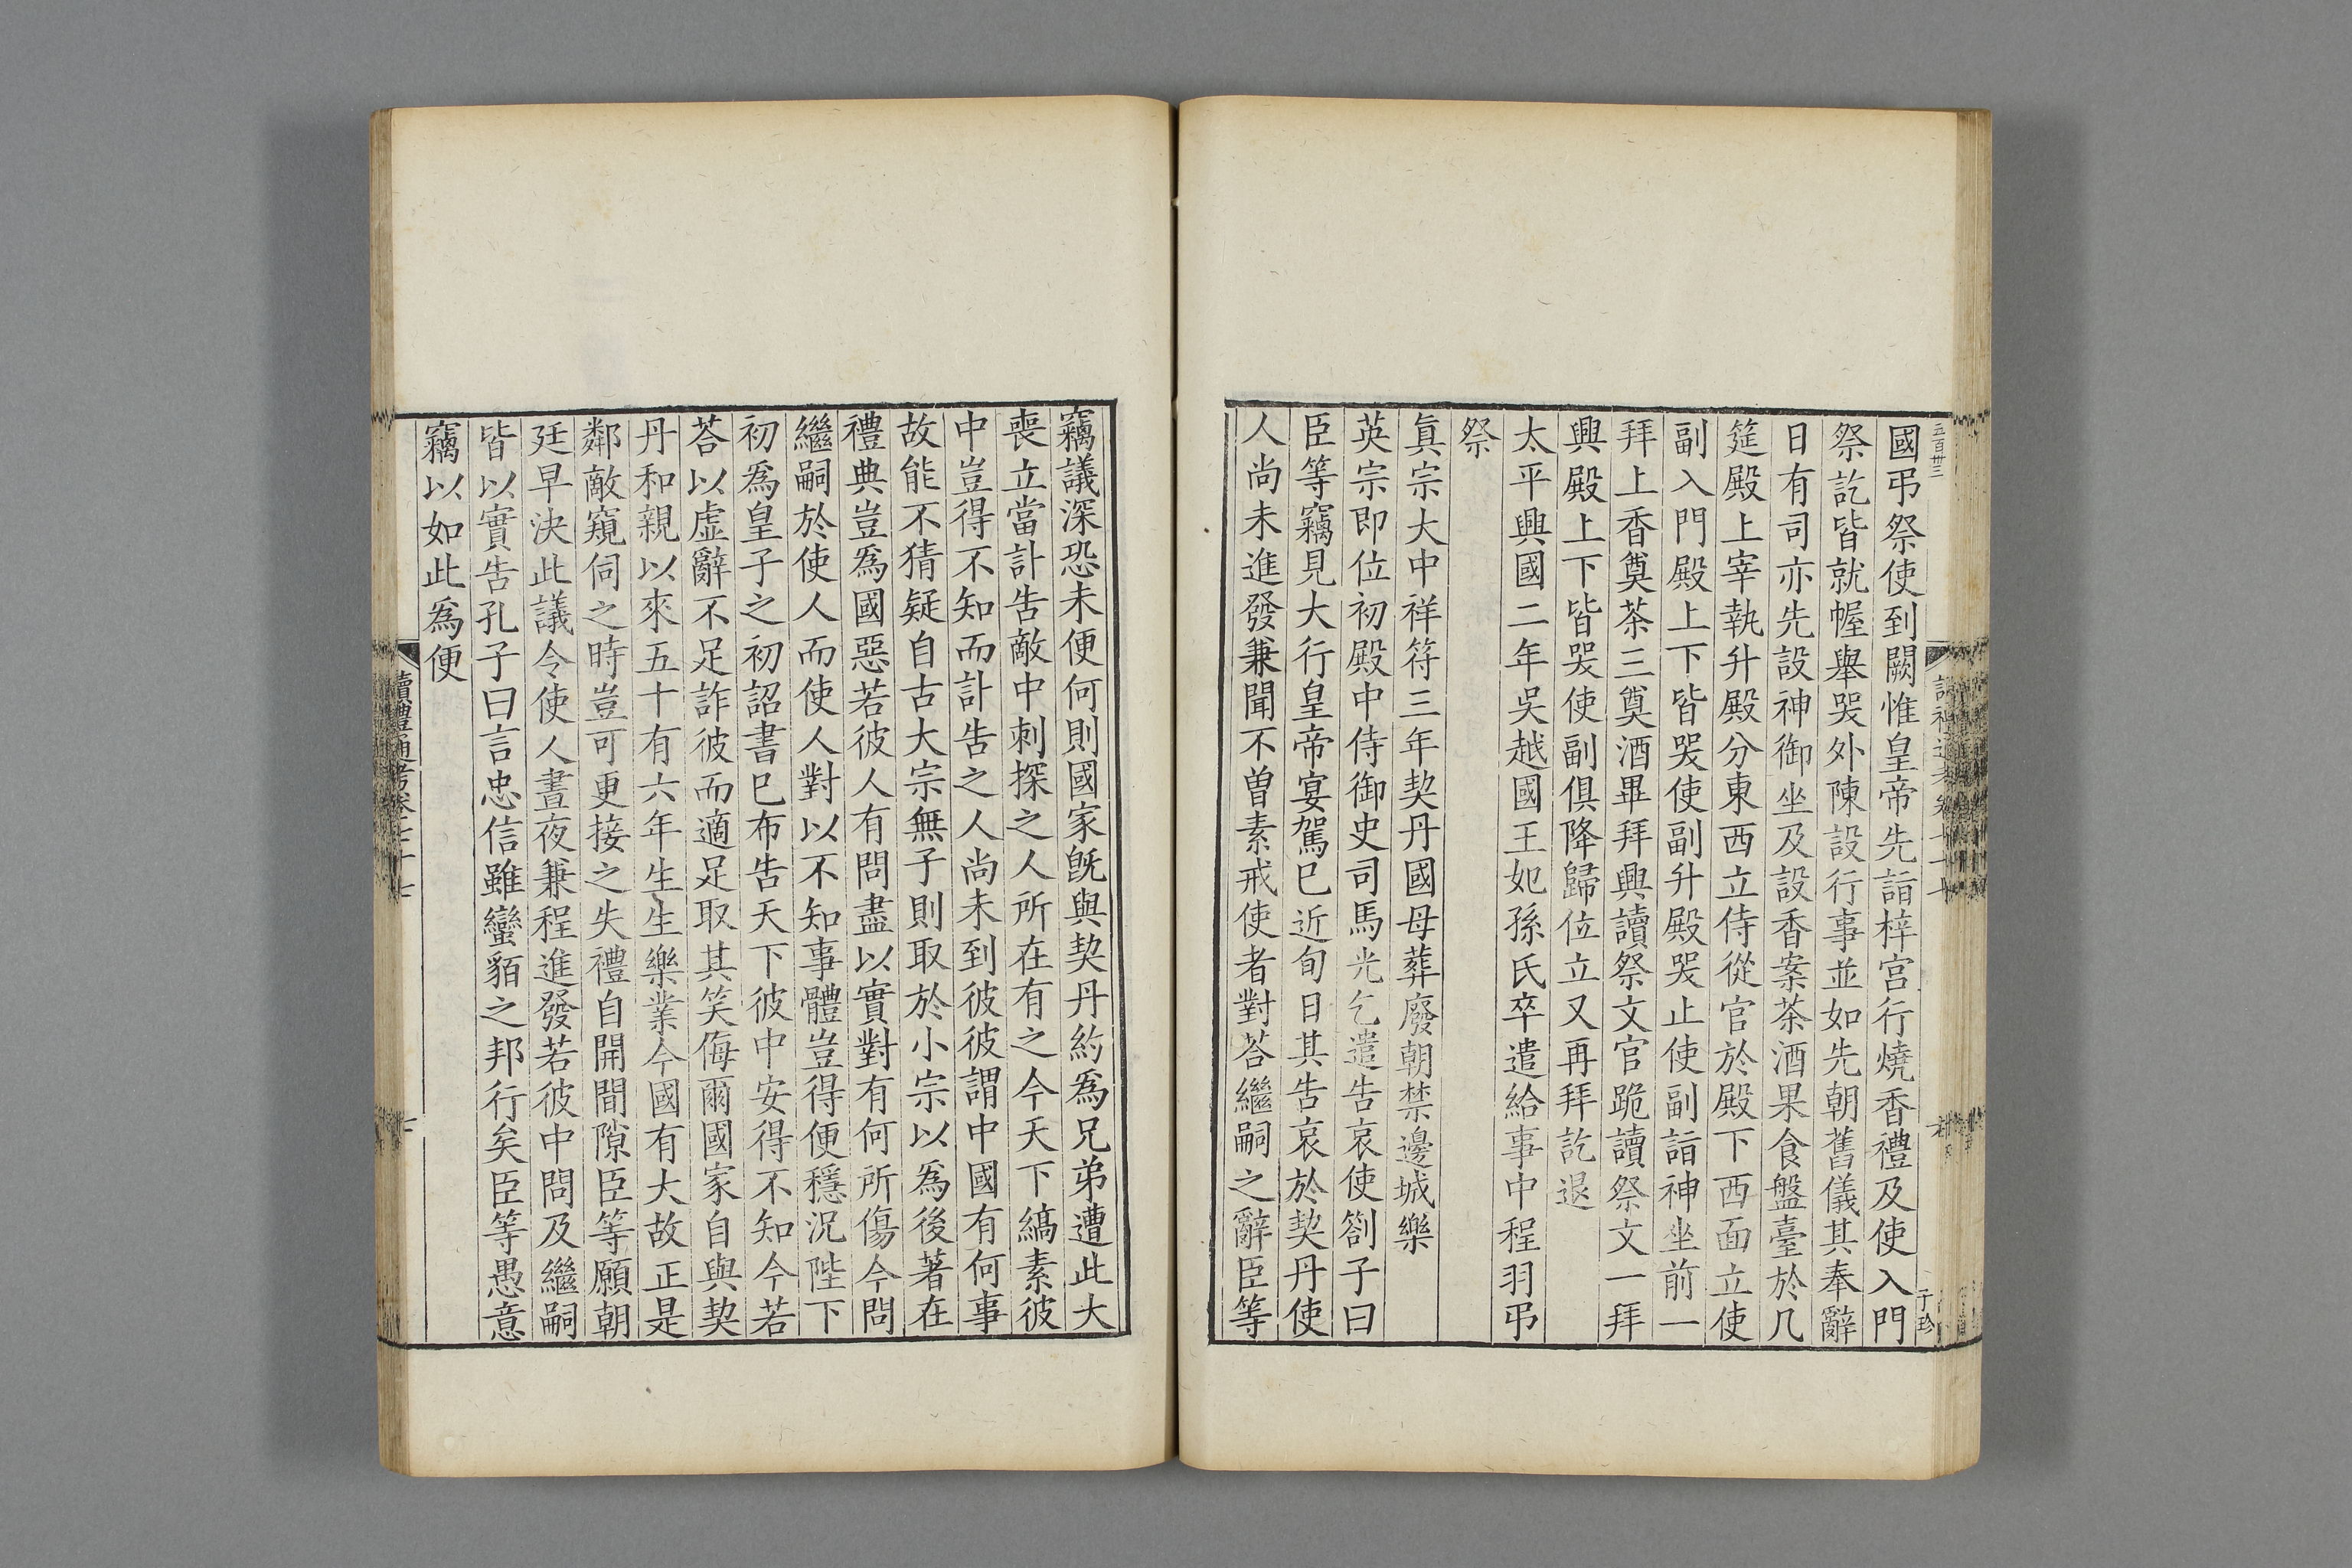 五百卅三
國弔祭使到闕惟皇帝先詣梓宮行燒香禮及使入門
祭訖皆就幄舉哭外陳設行事並如先朝舊儀其奉辭
日有司亦先設神御坐及設香案茶酒果食盤臺於几
筵殿上宰執升殿分東西立侍從官於殿下西面立使
副入門殿上下皆哭使副升殿哭止使副詣神坐前一
拜上香奠茶三奠酒畢拜興讀祭文官跪讀祭文一拜
興殿上下皆哭使副俱降歸位立又再拜訖退
太平興國二年吳越國王妃孫氏卒遣給事中程羽弔
祭
眞宗大中祥符三年契丹國母葬廢朝禁邊城樂
英宗即位初殿中侍御史司馬光乞遣告哀使劄子曰
臣等竊見大行皇帝宴駕已近旬日其告哀於契丹使
人尚未進發兼聞不曽素戒使者對荅繼嗣之辭臣等
竊議深恐未便何則國家旣與契丹約爲兄弟遭此大
喪立當訃告敵中刺探之人所在有之今天下縞素彼
中豈得不知而訃告之人尚未到彼彼謂中國有何事
故能不猜疑自古大宗無子則取於小宗以爲後著在
禮典豈爲國惡若彼人有問盡以實對有何所傷今問
繼嗣於使人而使人對以不知事體豈得便穩況陛下
初爲皇子之初詔書已布告天下彼中安得不知今若
荅以虛辭不足詐彼而適足取其笑侮爾國家自與契
丹和親以來五十有六年生生樂業今國有大故正是
鄰敵窺伺之時豈可更接之失禮自開間隙臣等願朝
廷早決此議令使人晝夜兼程進發若彼中問及繼嗣
皆以實告孔子曰言忠信雖蠻貊之邦行矣臣等愚意
竊以如此爲便
讀禮通考卷七十七
七